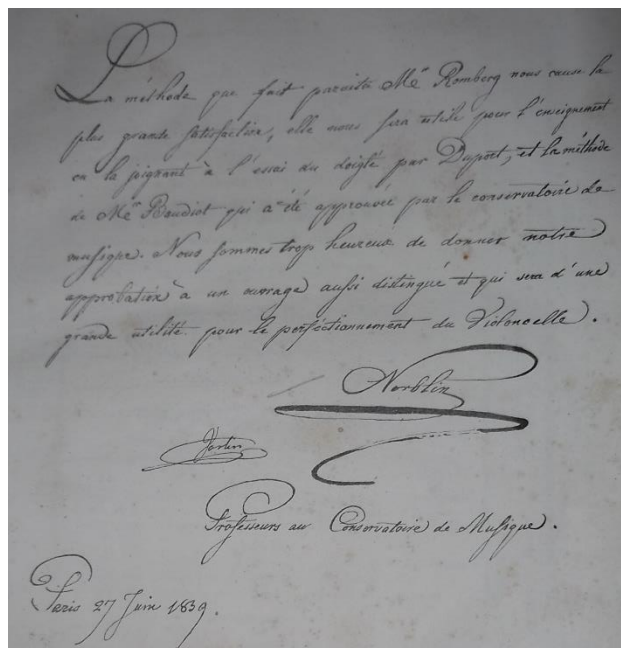 La méthode que fait paraitre Mr. Romberg nous cause la
plus grande satisfaction, elle nous sera utile pour l'enseignement
en la joignant à l'essai du doigté par Duport, et la méthode
de Mr. Baudiot qui a été approuvée par le conservatoire de
musique. Nous sommes trop heureux de donner notre
approbation à un ouvrage aussi distingué et qui sera d'une
grande utilité pour le perféctionnement du Violoncelle.
Norblin
Professeurs au Conservatoire de Musique.
Paris 27 Juin 1839.